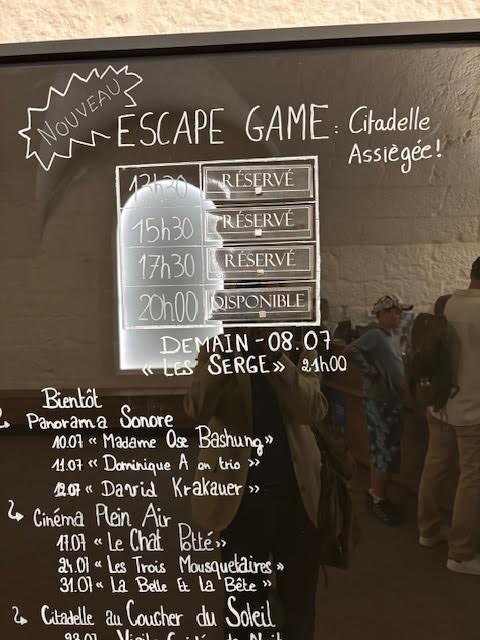 NOUVEAU
ESCAPE GAME: Citadelle
Assiègée!
13h30 RÉSERVÉ
15h30 RÉSERVÉ
17h30 RÉSERVÉ
20h00 DISPONIBLE
DEMAIN - 08.07
« LES SERGE » 21h00
Bientôt
↳ Panorama Sonore
10.07 « Madame Ose Bashung »
11.07 « Dominique A en trio »
12.07 « David Krakauer »
↳ Cinéma Plein Air
17.07 « Le Chat Potté »
24.07 « Les Trois Mousquetaires »
31.07 « La Belle Et La Bête »
↳ Citadelle au Coucher du Soleil